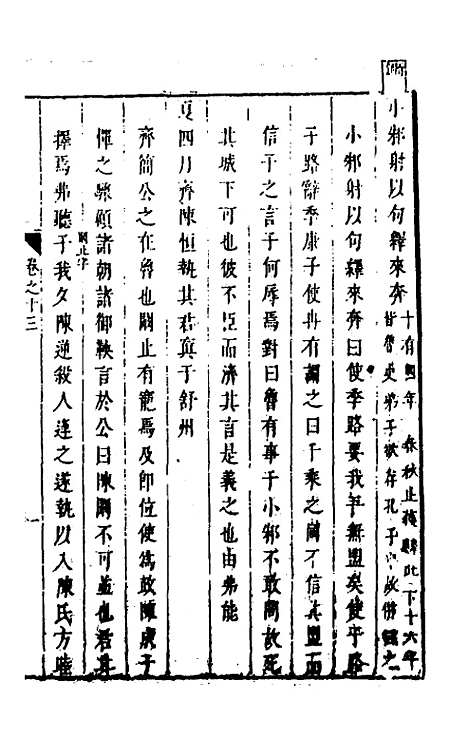 小邾射以句繹來奔
十有四年 春秋止獲麟此下十六年
皆魯史弟子欲存孔子卒故併錄之
小邾射以句繹來奔曰使季路要我吾無盟矣使子路
子路辭季康子使冉有謂之曰千乘之國不信其盟而
信子之言子何辱焉對曰魯有事于小邾不敢問故死
其城下可也彼不臣而濟其言是義之也由弗能
夏四月齊陳恒執其君寘于舒州
齊簡公之在魯也闞止有寵焉及即位使為政陳成子
憚之驟顧諸朝諸御鞅言於公曰陳闞不可並也君其
闞止字
擇焉弗聽子我夕陳逆殺人逢之遂執以入陳氏方睦
卷之十三
一